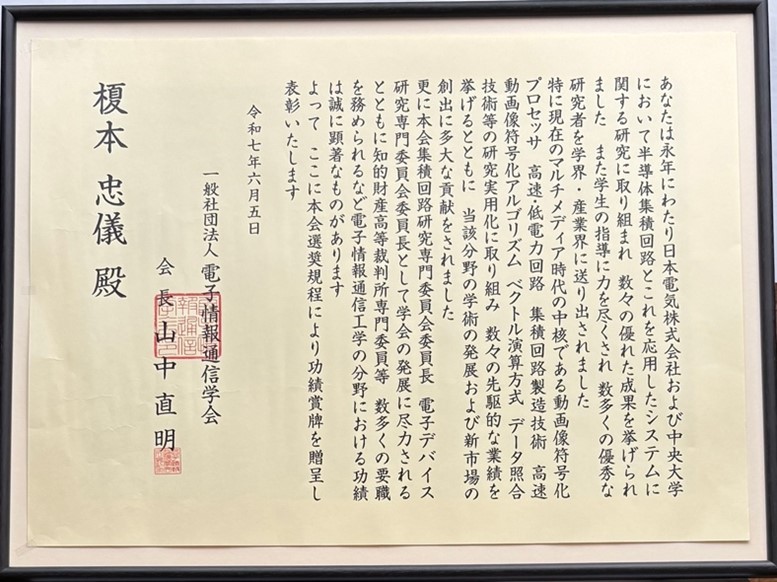 あなたは永年にわたり日本電気株式会社および中央大学
において半導体集積回路とこれを応用したシステムに
関する研究に取り組まれ 数々の優れた成果を挙げられ
ました また学生の指導に力を尽くされ 数多くの優秀な
研究者を学界・産業界に送り出されました
特に現在のマルチメディア時代の中核である動画像符号化
プロセッサ 高速・低電力回路 集積回路製造技術 高速
動画像符号化アルゴリズム ベクトル演算方式 データ照合
技術等の研究実用化に取り組み 数々の先駆的な業績を
挙げるとともに 当該分野の学術の発展および新市場の
創出に多大な貢献をされました
更に本会集積回路研究専門委員会委員長 電子デバイス
研究専門委員会委員長として学会の発展に尽力される
とともに知的財産高等裁判所専門委員等 数多くの要職
を務められるなど電子情報通信工学の分野における功績
は誠に顕著なものがあります
よって ここに本会選奨規程により功績賞牌を贈呈し
表彰いたします
令和七年六月五日
一般社団法人 電子情報通信学会
会長 山中直明
榎本 忠儀 殿